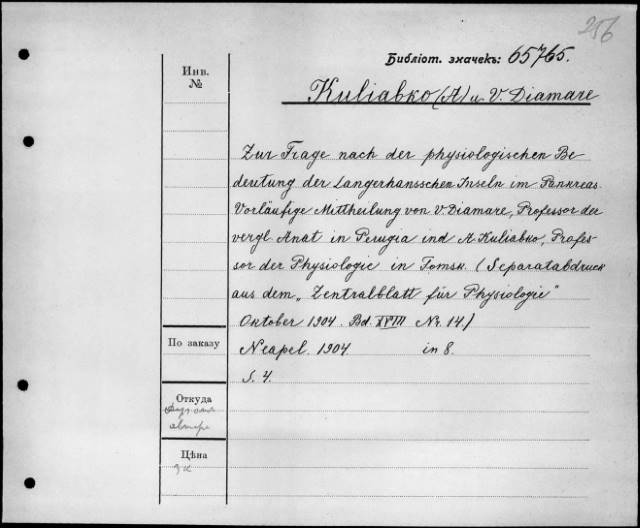 256
Библіот. значекъ: 65765.
Инв.
№
Kuliabko (A) u V. Diamare
Zur Frage nach der physiologischen Be
deretung der Langerhansschen Inseln im Pankreas.
Vorläufige Mittheilung von V. Diamare, Professor der
vergl Anat in Perugia ind A Kuliabko, Profes-
sor der Physiologie in Tomsk. (Separatabdruck
aus dem „Zentralblatt für Physiologie"
Oktober 1904. Bd. XVIII Nr. 14)
По заказу
Neapel. 1904 in 8.
S. 4.
Откуда
автора
Цѣна